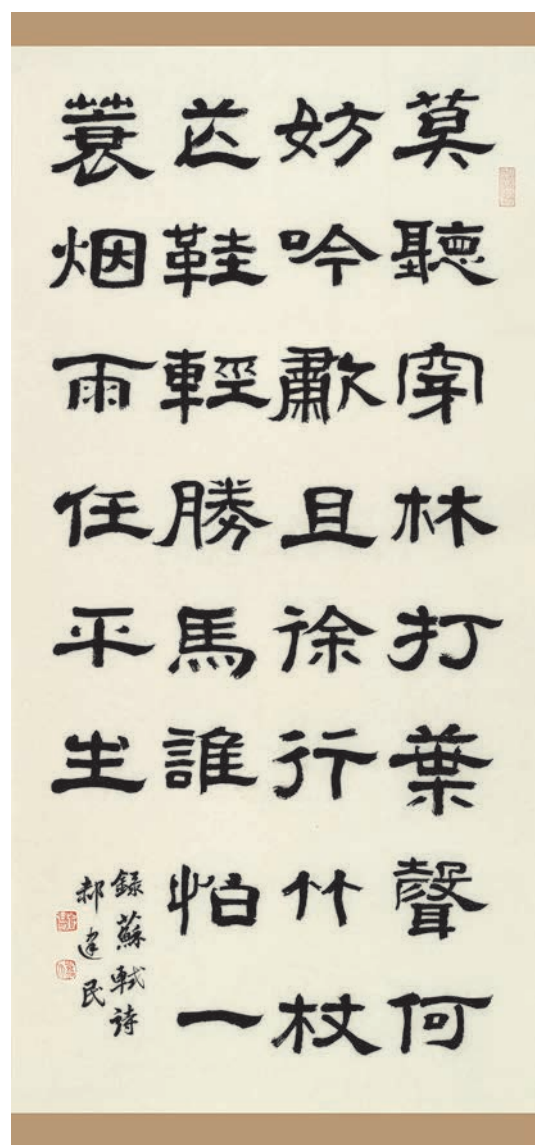 莫聽穿林打葉聲何
妨吟歗且徐行竹杖
芒鞋輕勝馬誰怕一
蓑烟雨任平生
録蘇軾詩
郝建民